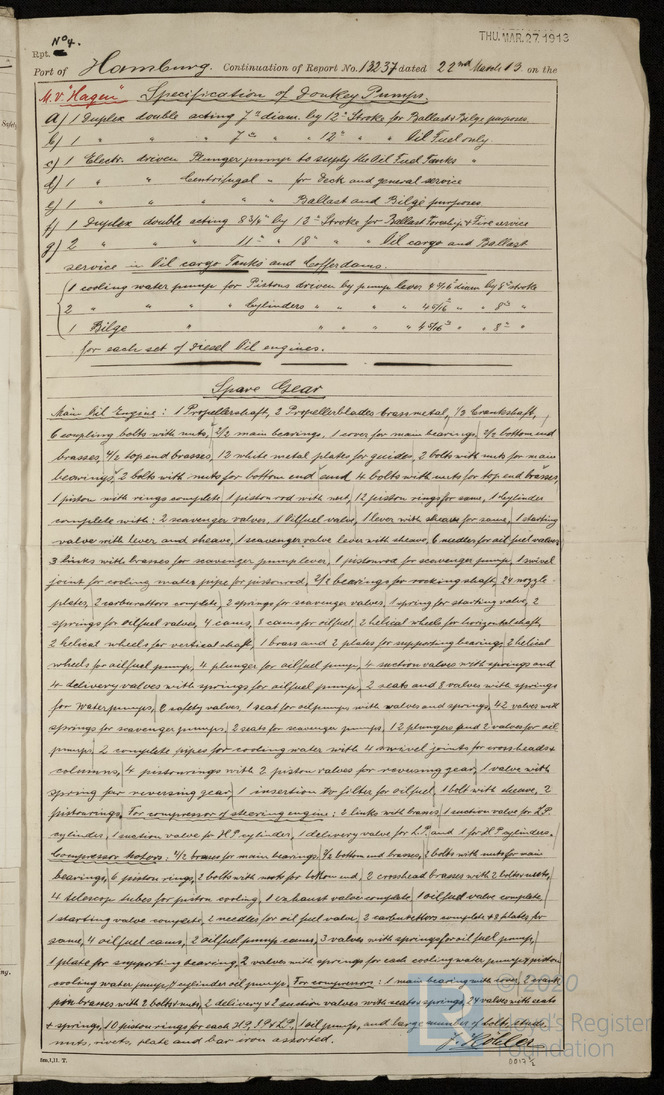 THU. MAR. 27. 1913
No 4.
Rpt.
Port of Hamburg. Continuation of Report No. 13237 dated 22nd March 13 on the
M.V. "Hagen" Specification of Donkey Pumps.
a) 1 Duplex double acting 7" diam. by 12" Stroke for Ballast & Bilge purposes.
b) 1 " " " 7" " 12" " " Oil Fuel only.
c) 1 Electr. driven Plunger pump to supply the Oil Fuel Tanks "
d) 1 " " Centrifugal " for Deck and general service
e) 1 " " " " " Ballast and Bilge purposes
f) 1 Duplex double acting 8 3/4" by 12" Stroke for Ballast & Fire service
g) 2 " " " 11" " 18" " " Oil cargo and Ballast
service in Oil cargo Tanks and Cofferdams.
1 cooling water pump for Pistons driven by pump lever 4 5/16" diam by 8" stroke
2 " " " " Cylinders " " " 4 5/16" " " 8" "
1 Bilge " " " " " 4 5/16" " " 8" "
for each set of Diesel Oil engines.
Spare Gear
Main Oil Engine : 1 Propellershaft, 2 Propellerblades brassmetal, 1/3 Crankshaft,
6 coupling bolts with nuts, 2/2 main bearings, 1 cover for main bearings, 2/2 bottom end
brasses, 4/2 top end brasses, 12 white metal plates for guides, 2 bolts with nuts for main
bearings, 2 bolts with nuts for bottom end and 4 bolts with nuts for top end brasses,
1 piston with rings complete, 1 pistonrod with nut, 12 piston rings for same, 1 cylinder
complete with : 2 scavenger valves, 1 oilfuel valve, 1 lever with sheave for same, 1 starting
valve with lever and sheave, 1 scavenger valve lever with sheave, 6 needles for oil fuel valves
3 links with brasses for scavenger pump lever, 1 pistonrod for scavenger pump, 1 swivel
joint for cooling water pipe for pistonrod, 2/2 bearings for rocking shaft, 24 nozzle
plates, 2 carburattors complete, 2 springs for scavenger valves, 1 spring for starting valve, 2
springs for oilfuel valves, 4 cams, 8 cams for oilfuel, 2 helical wheels for horizontal shaft,
2 helical wheels for vertical shaft, 1 brass and 2 plates for supporting bearing, 2 helical
wheels for oilfuel pump, 4 plunger for oilfuel pump, 4 suction valves with springs and
4 delivery valves with springs for oilfuel pump, 2 seats and 8 valves with springs
for waterpumps, 2 safety valves, 1 seat for oilpumps with valves and springs, 42 valves with
springs for scavenger pumps, 2 seats for scavenger pumps, 12 plungers and 2 valves for oil
pump, 2 complete pipes for cooling water with 4 swivel joints for crossheads &
columns, 4 pistonrings with 2 piston valves for reversing gear, 1 valve with
spring for reversing gear, 1 insertion for filter for oilfuel, 1 bolt with sheave, 2
pistonrings. For compressor of steering engine : 2 links with brasses, 1 suction valve for L.P.
cylinder, 1 suction valve for H.P. cylinder, 1 delivery valve for L.P. and 1 for H.P. cylinders.
Compressor motors : 4/2 brasses for main bearings, 2/2 bottom end brasses, 2 bolts with nuts for main
bearings, 6 piston rings, 2 bolts with nuts for bottom end, 2 crosshead brasses with 2 bolts & nuts,
4 telescop tubes for piston cooling, 1 exhaust valve complete, 1 oilfuel valve complete,
1 starting valve complete, 2 needles for oil fuel valve, 2 carburettors complete & 8 plates for
same, 4 oilfuel cams, 2 oilfuel pump cams, 3 valves with springs for oil fuel pump,
1 plate for supporting bearing, 2 valves with springs for each cooling water pump & piston
cooling water pump & cylinder oil pump. For compressors : 1 main bearing with cover, 2 crank
pin brasses with 2 bolts & nuts, 2 delivery & 2 suction valves with seats & springs, 24 valves with seats
& springs, 10 piston rings for each H.P., I.P. & L.P., 1 oil pump, and large number of bolts, studs,
nuts, rivets, plate and bar iron assorted.
J. Köhler
2m,1,11. T.
0017 1/2
© 2020
Lloyd's Register
Foundation